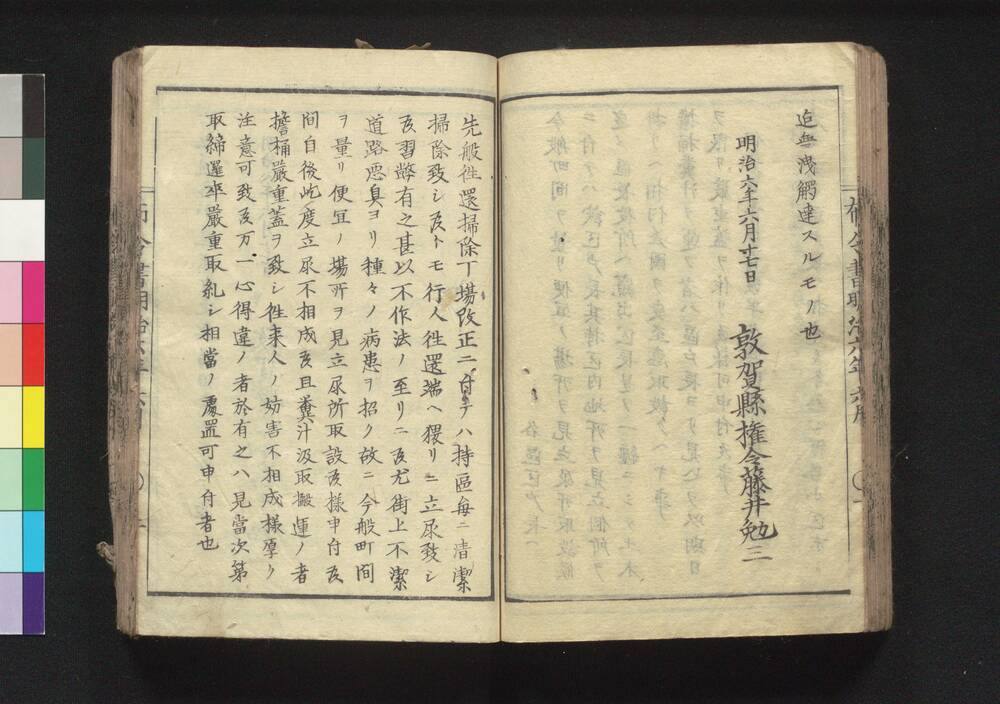 迄無洩觸達スルモノ也
明治六年六月十七日
敦賀縣権令藤井勉三
先般徃還掃除丁場改正ニ付テハ持區毎ニ清潔
掃除致シ候トモ行人徃還端ヘ猥リニ立尿致シ
候習弊有之甚以不作法ノ至リニ候尤街上不潔
道路悪臭ヨリ種々ノ病患ヲ招ク故ニ今般町間
ヲ量リ便宜ノ場所ヲ見立尿所取設候様申付候
間自後此度立尿不相成候且糞汁汲取搬運ノ者
擔桶嚴重蓋ヲ致シ徃来人ノ妨害不相成様厚ク
注意可致候万一心得違ノ者於有之ハ見當次第
取締邏卒嚴重取糺シ相當ノ處置可申付者也
布令書明治六年 六月